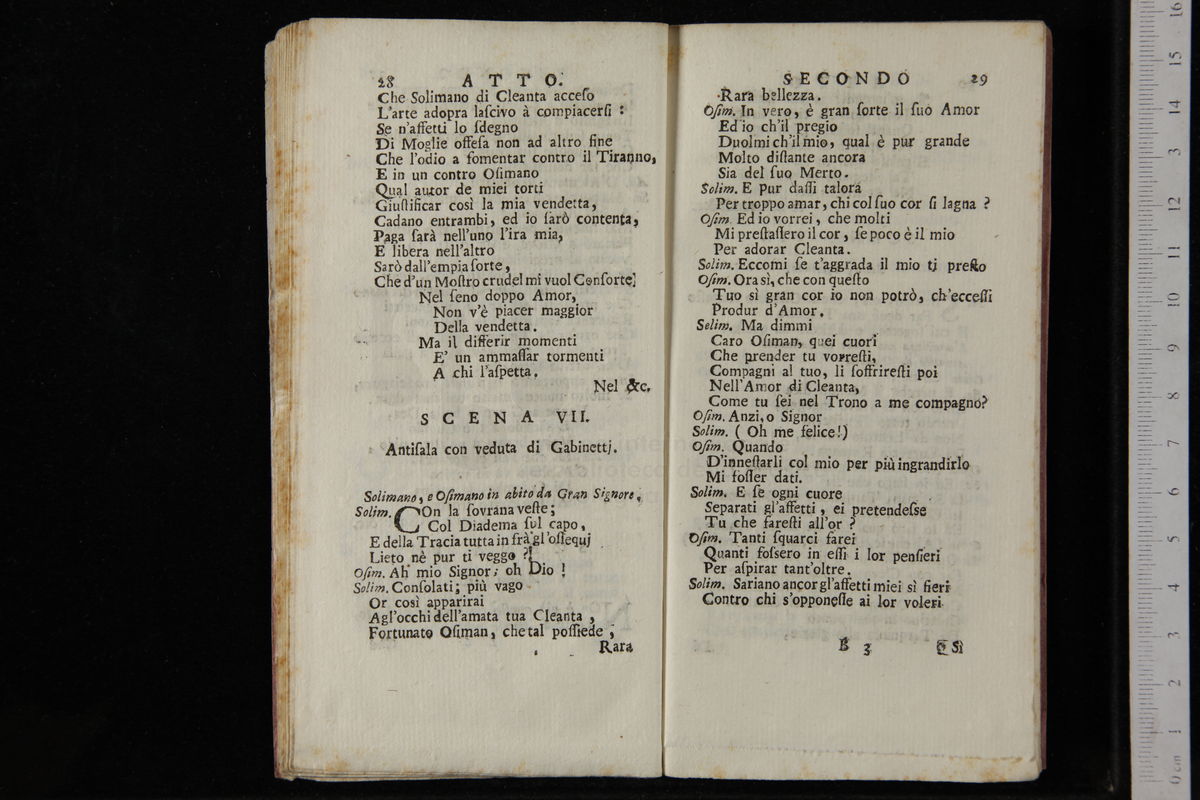 28 ATTO.
Che Solimano di Cleanta acceſo
L'arte adopra laſcivo à compiacerſi :
Se n'affetti lo ſdegno
Di Moglie offeſa non ad altro fine
Che l'odio a fomentar contro il Tiranno,
E in un contro Oſimano
Qual autor de miei torti
Giuſtificar così la mia vendetta,
Cadano entrambi, ed io ſarò contenta,
Paga ſarà nell'uno l'ira mia,
E libera nell'altro
Sarò dall'empia ſorte,
Che d'un Moſtro crudel mi vuol Conſorte.
Nel ſeno doppo Amor,
Non v'è piacer maggior
Della vendetta.
Ma il differir momenti
E' un ammaſſar tormenti
A chi l'aſpetta.
Nel &c.
SCENA VII.
Antiſala con veduta di Gabinetti.
Solimano, e Oſimano in abito da Gran Signore.
Solim. COn la ſovrana veſte;
Col Diadema ſul capo,
E della Tracia tutta in frà gl'oſſequj
Lieto nè pur ti veggo ?!
Oſim. Ah mio Signor; oh Dio !
Solim. Conſolati; più vago
Or così apparirai
Agl'occhi dell'amata tua Cleanta ,
Fortunato Oſiman, che tal poſſiede ;
Rara
SECONDO 29
Rara bellezza.
Oſim. In vero, è gran ſorte il ſuo Amor
Ed io ch'il pregio
Duolmi ch'il mio, qual è pur grande
Molto diſtante ancora
Sia del ſuo Merto.
Solim. E pur daſſi talora
Per troppo amar, chi col ſuo cor ſi lagna ?
Oſim. Ed io vorrei, che molti
Mi preſtaſſero il cor, ſe poco è il mio
Per adorar Cleanta.
Solim. Eccomi ſe t'aggrada il mio ti preſto
Oſim. Ora sì, che con queſto
Tuo sì gran cor io non potrò, ch'ecceſſi
Produr d'Amor.
Selim. Ma dimmi
Caro Oſiman, quei cuori
Che prender tu vorreſti,
Compagni al tuo, li ſoffrireſti poi
Nell'Amor di Cleanta,
Come tu ſei nel Trono a me compagno?
Oſim. Anzi, o Signor
Solim. ( Oh me felice!)
Oſim. Quando
D'inneſtarli col mio per più ingrandirlo
Mi foſſer dati.
Solim. E ſe ogni cuore
Separati gl'affetti , ei pretendeſse
Tu che fareſti all'or ?
Oſim. Tanti ſquarci farei
Quanti foſsero in eſſi i lor penſieri
Per aſpirar tant'oltre.
Solim. Sariano ancor gl'affetti miei sì fieri
Contro chi s'opponeſſe ai lor voleri
B 3 Sì